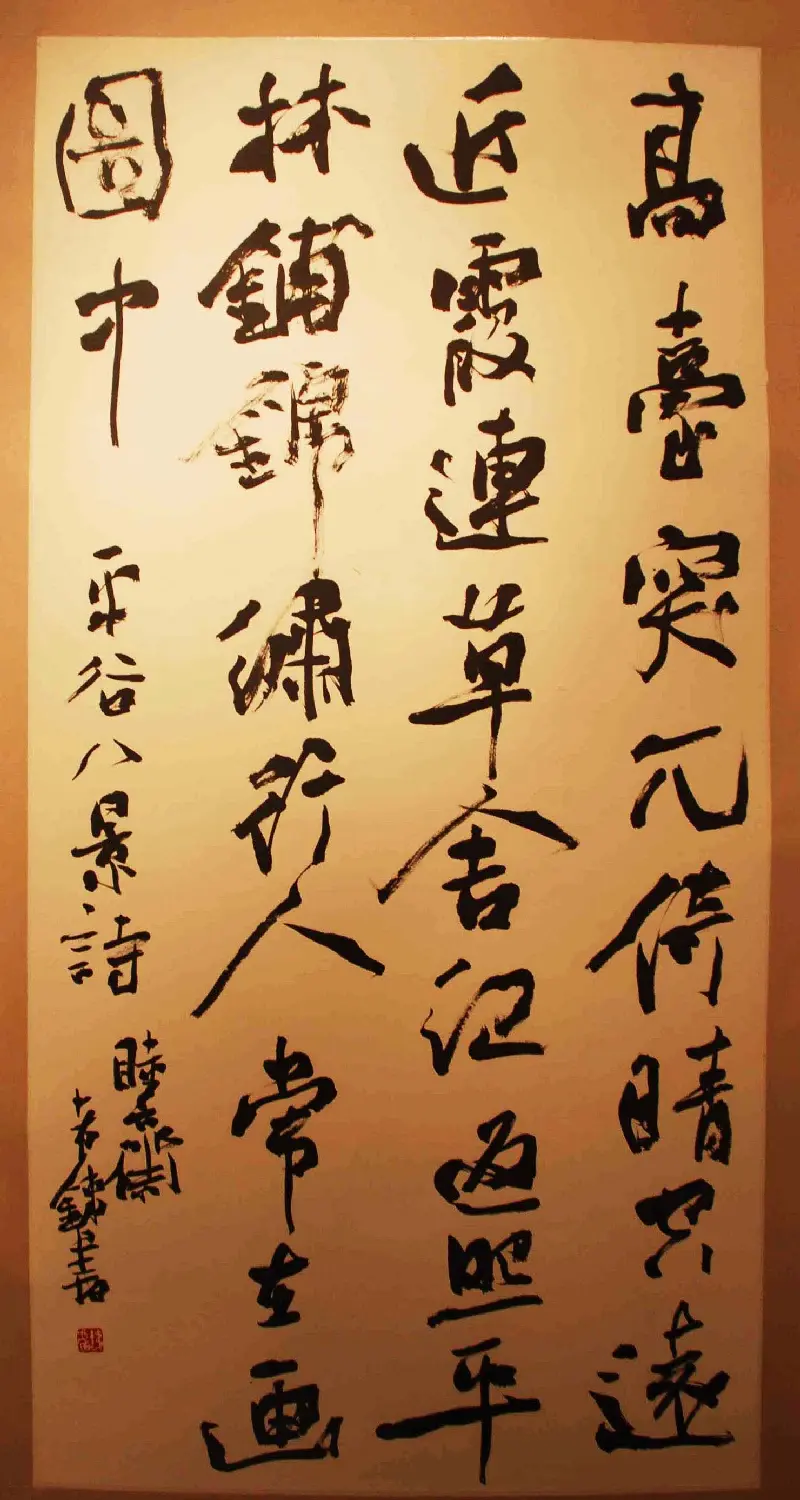 高臺突兀倚晴空遠
近霞連草舍紅返照平
林鋪錦繡行人常在画
圖中
平谷八景詩